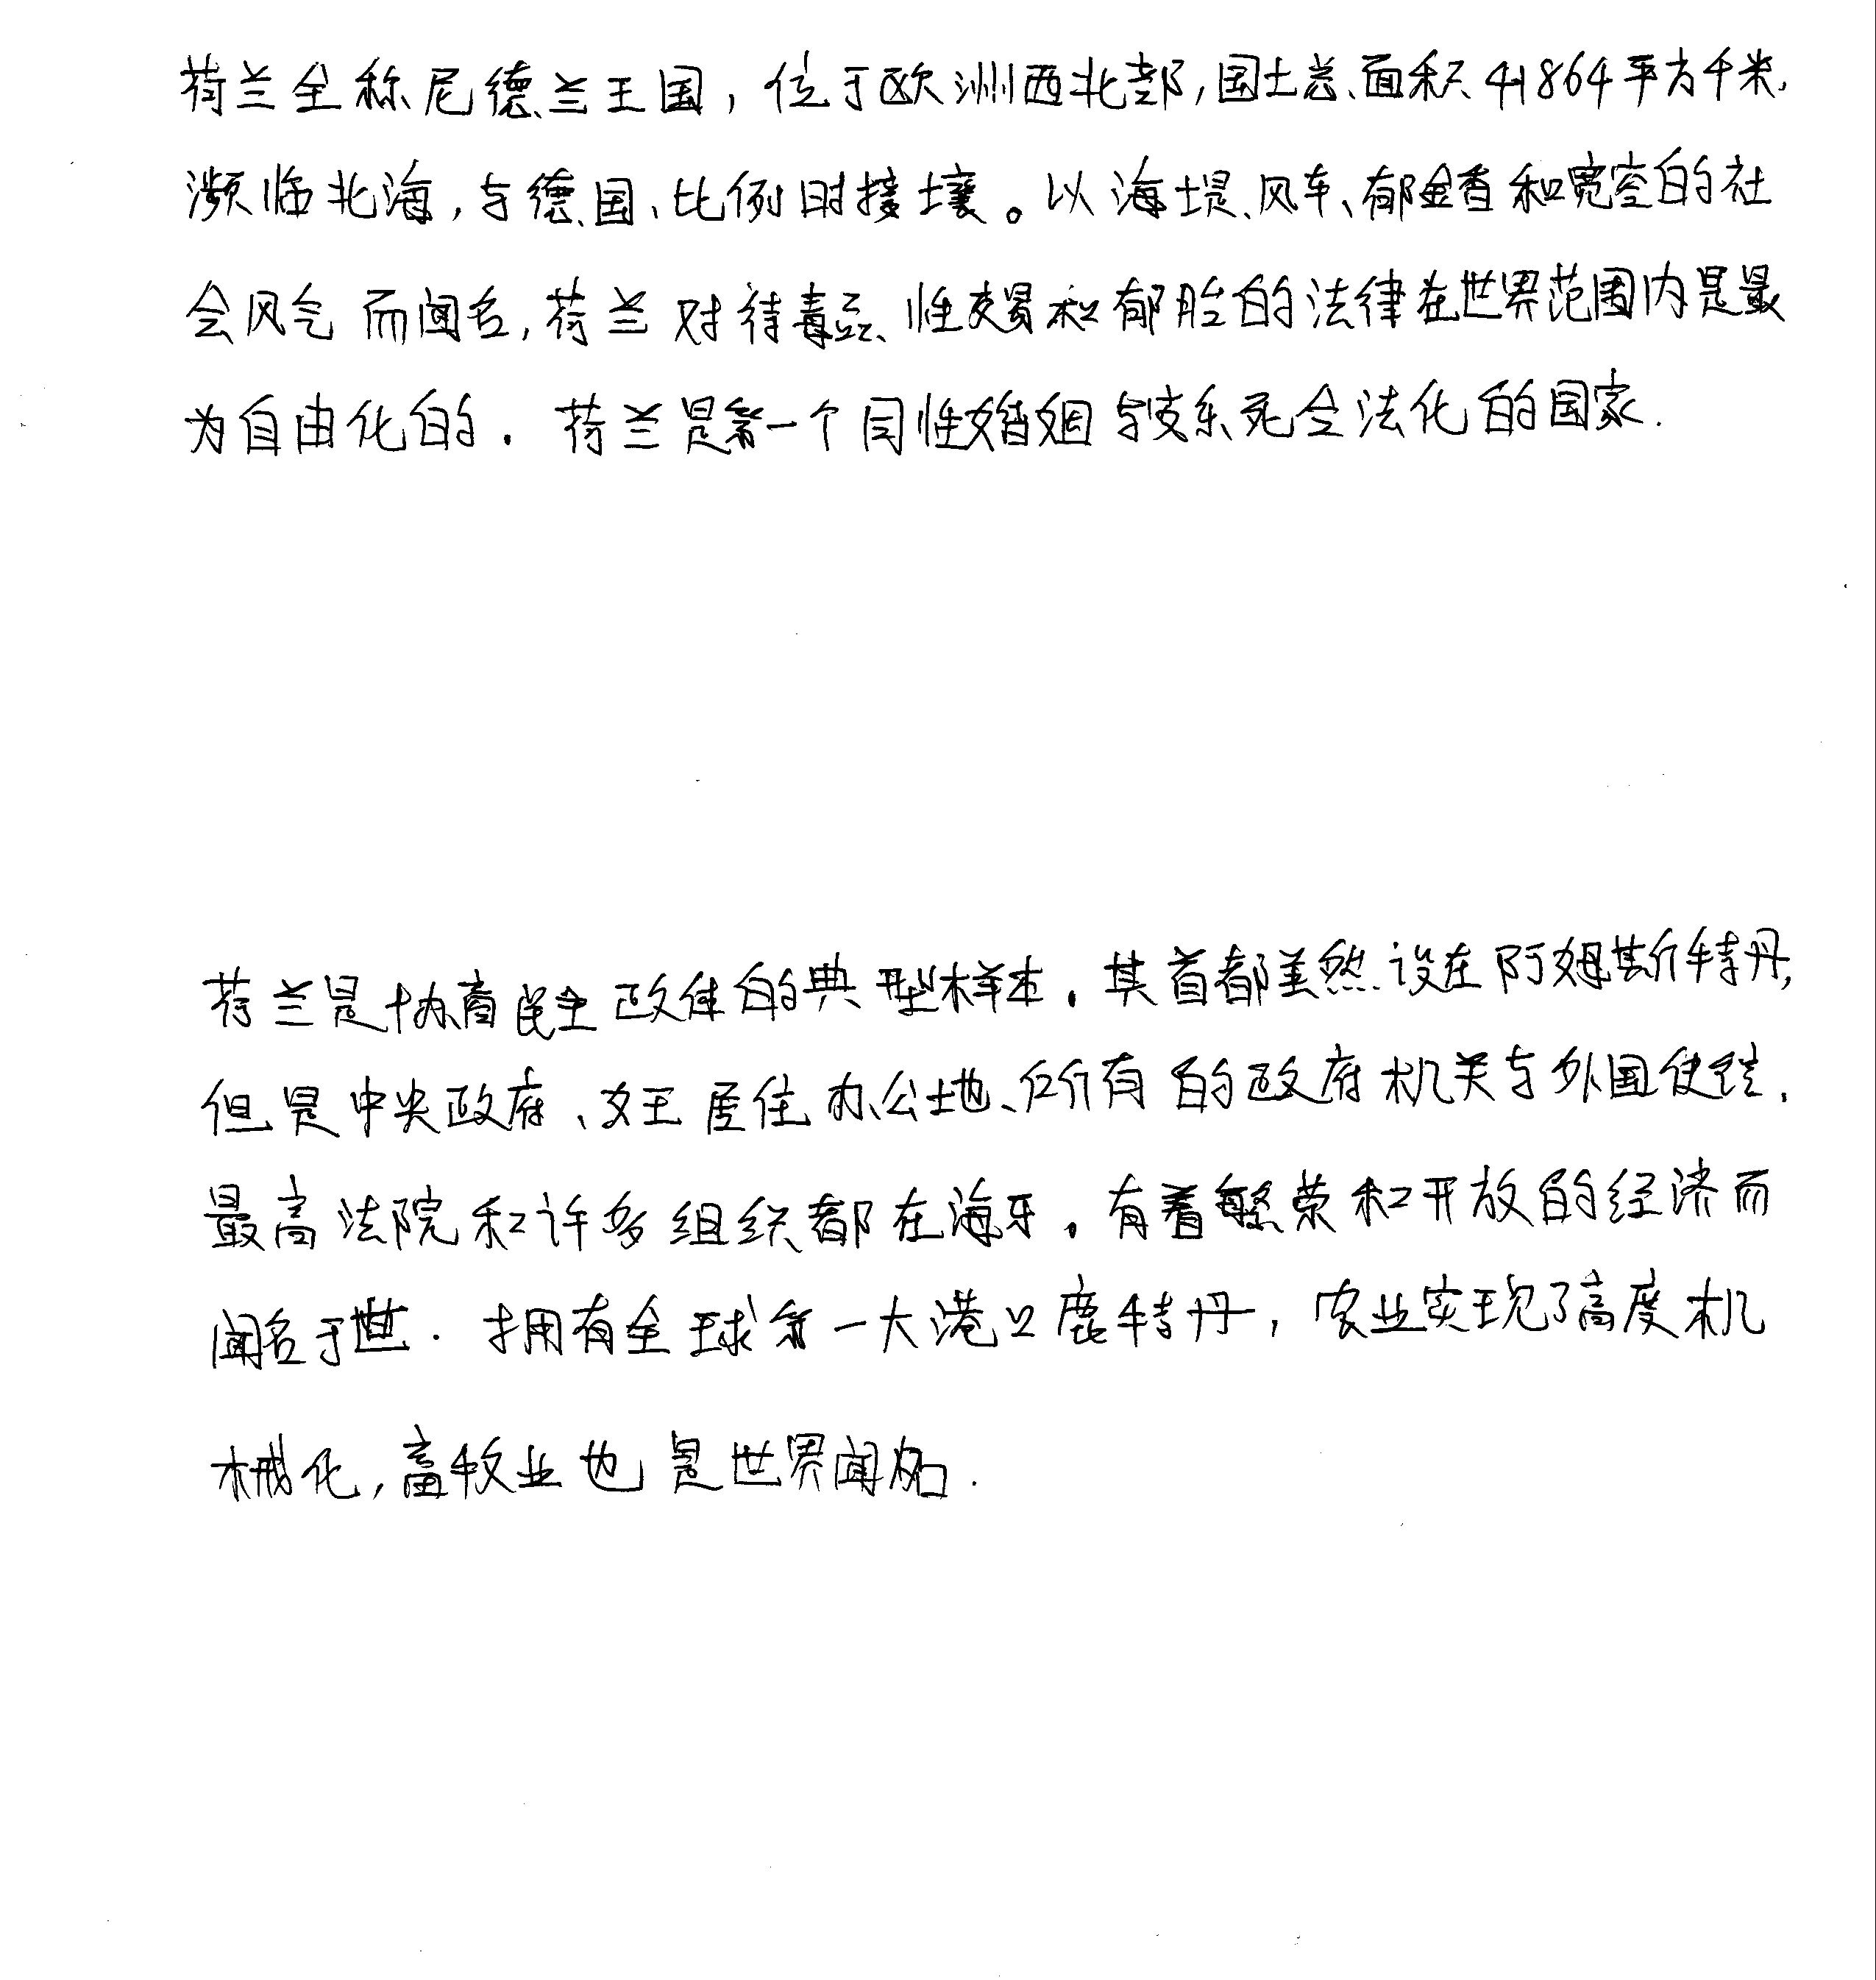 荷兰全称尼德兰王国，位于欧洲西北部，国土总面积41864平方千米，
濒临北海，与德国、比例时接壤。以海堤、风车、郁金香和宽容的社
会风气而闻名，荷兰对待毒品、性交易和郁胎的法律在世界范围内是最
为自由化的. 荷兰是第一个同性婚姻与安乐死合法化的国家.
荷兰是协商民主政体的典型样本. 其首都虽然设在阿姆斯特丹,
但是中央政府、女王居住办公地、所有的政府机关与外国使馆、
最高法院和许多组织都在海牙. 有着繁荣和开放的经济而
闻名于世. 拥有全球第一大港口鹿特丹，农业实现了高度机
械化，畜牧业也是世界闻名.